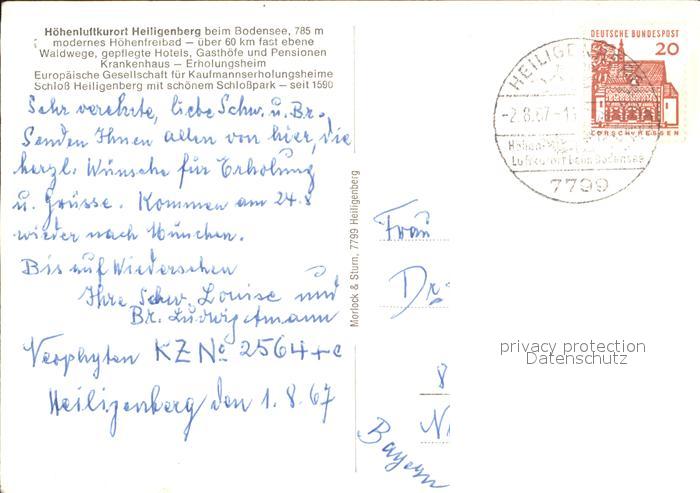 Höhenluftkurort Heiligenberg beim Bodensee, 785 m
modernes Höhenfreibad — über 60 km fast ebene
Waldwege, gepflegte Hotels, Gasthöfe und Pensionen
Krankenhaus — Erholungsheim
Europäische Gesellschaft für Kaufmannserholungsheime
Schloß Heiligenberg mit schönem Schloßpark — seit 1590
Sehr verehrte, liebe Schw. u. Br.,
Senden Ihnen allen von hier, die
herzl. Wünsche für Erholung
u. Grüsse. Kommen am 24.8
wieder nach München.
Bis auf Wiedersehen
Ihre Schw. Louise und
Br. Ludwig Amann
Neophyten KZ No 2564+c
Heiligenberg den 1.8.67
Morlock & Sturn, 7799 Heiligenberg
DEUTSCHE BUNDESPOST
20
LORSCH/HESSEN
HEILIGENBERG
-2.8.67-11
Höhen-
Luftkurort beim Bodensee
7799
Frau
Dr.
8
N
Bayern
privacy protection
Datenschutz